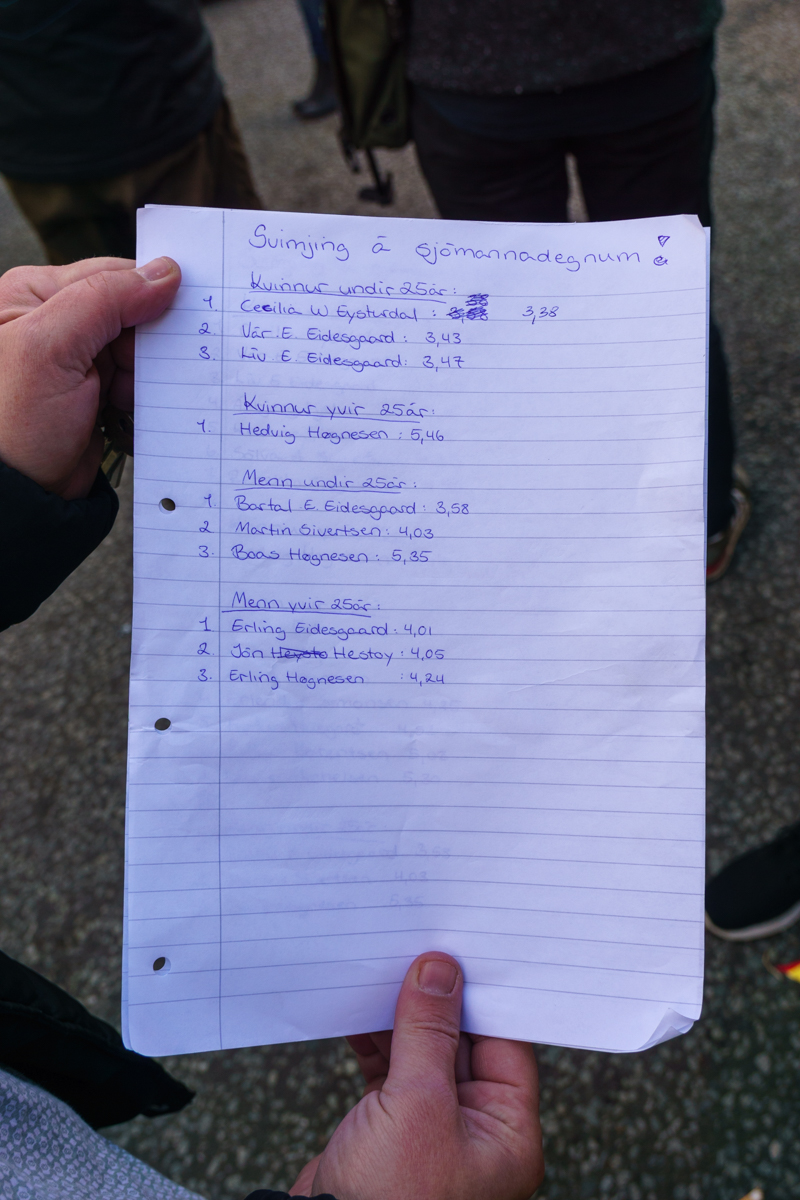 Svimjing á sjómannadegnum!
Kvinnur undir 25ár:
1. Cecilia W Eysturdal : 3,38
2. Vár E. Eidesgaard : 3,43
3. Liv E. Eidesgaard: 3,47
Kvinnur yvir 25ár:
1. Hedvig Høgnesen : 5,46
Menn undir 25ár:
1 Bartal E. Eidesgaard: 3,58
2 Martin Sivertsen: 4,03
3. Boas Høgnesen : 5,35
Menn yvir 25ár:
1 Erling Eidesgaard: 4,01
2. Jón Hestoy : 4,05
3. Erling Høgnesen : 4,24